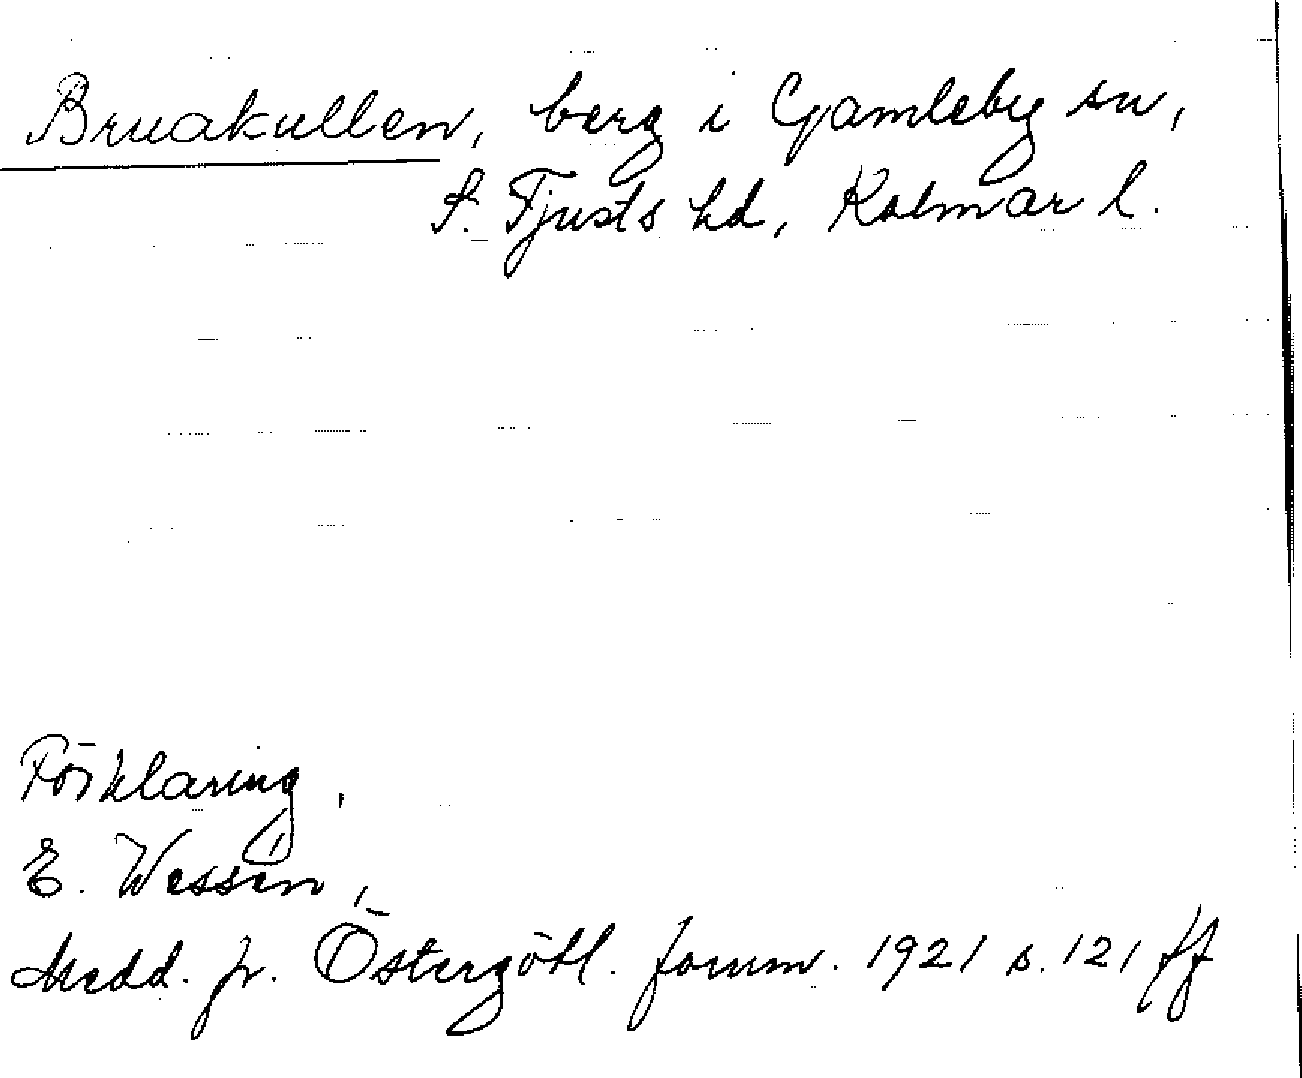 Bruakullen, berg i Gamleby sn,
S. Tjusts hd, Kalmar l.
Förklaring.
E. Wessén,
Medd. fr. Östergötl. fornm. 1921 s. 121 ff